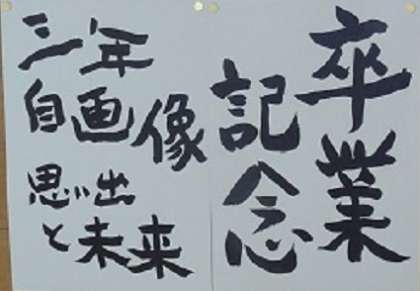 卒業
記念
三年
自画像
思い出
と未来